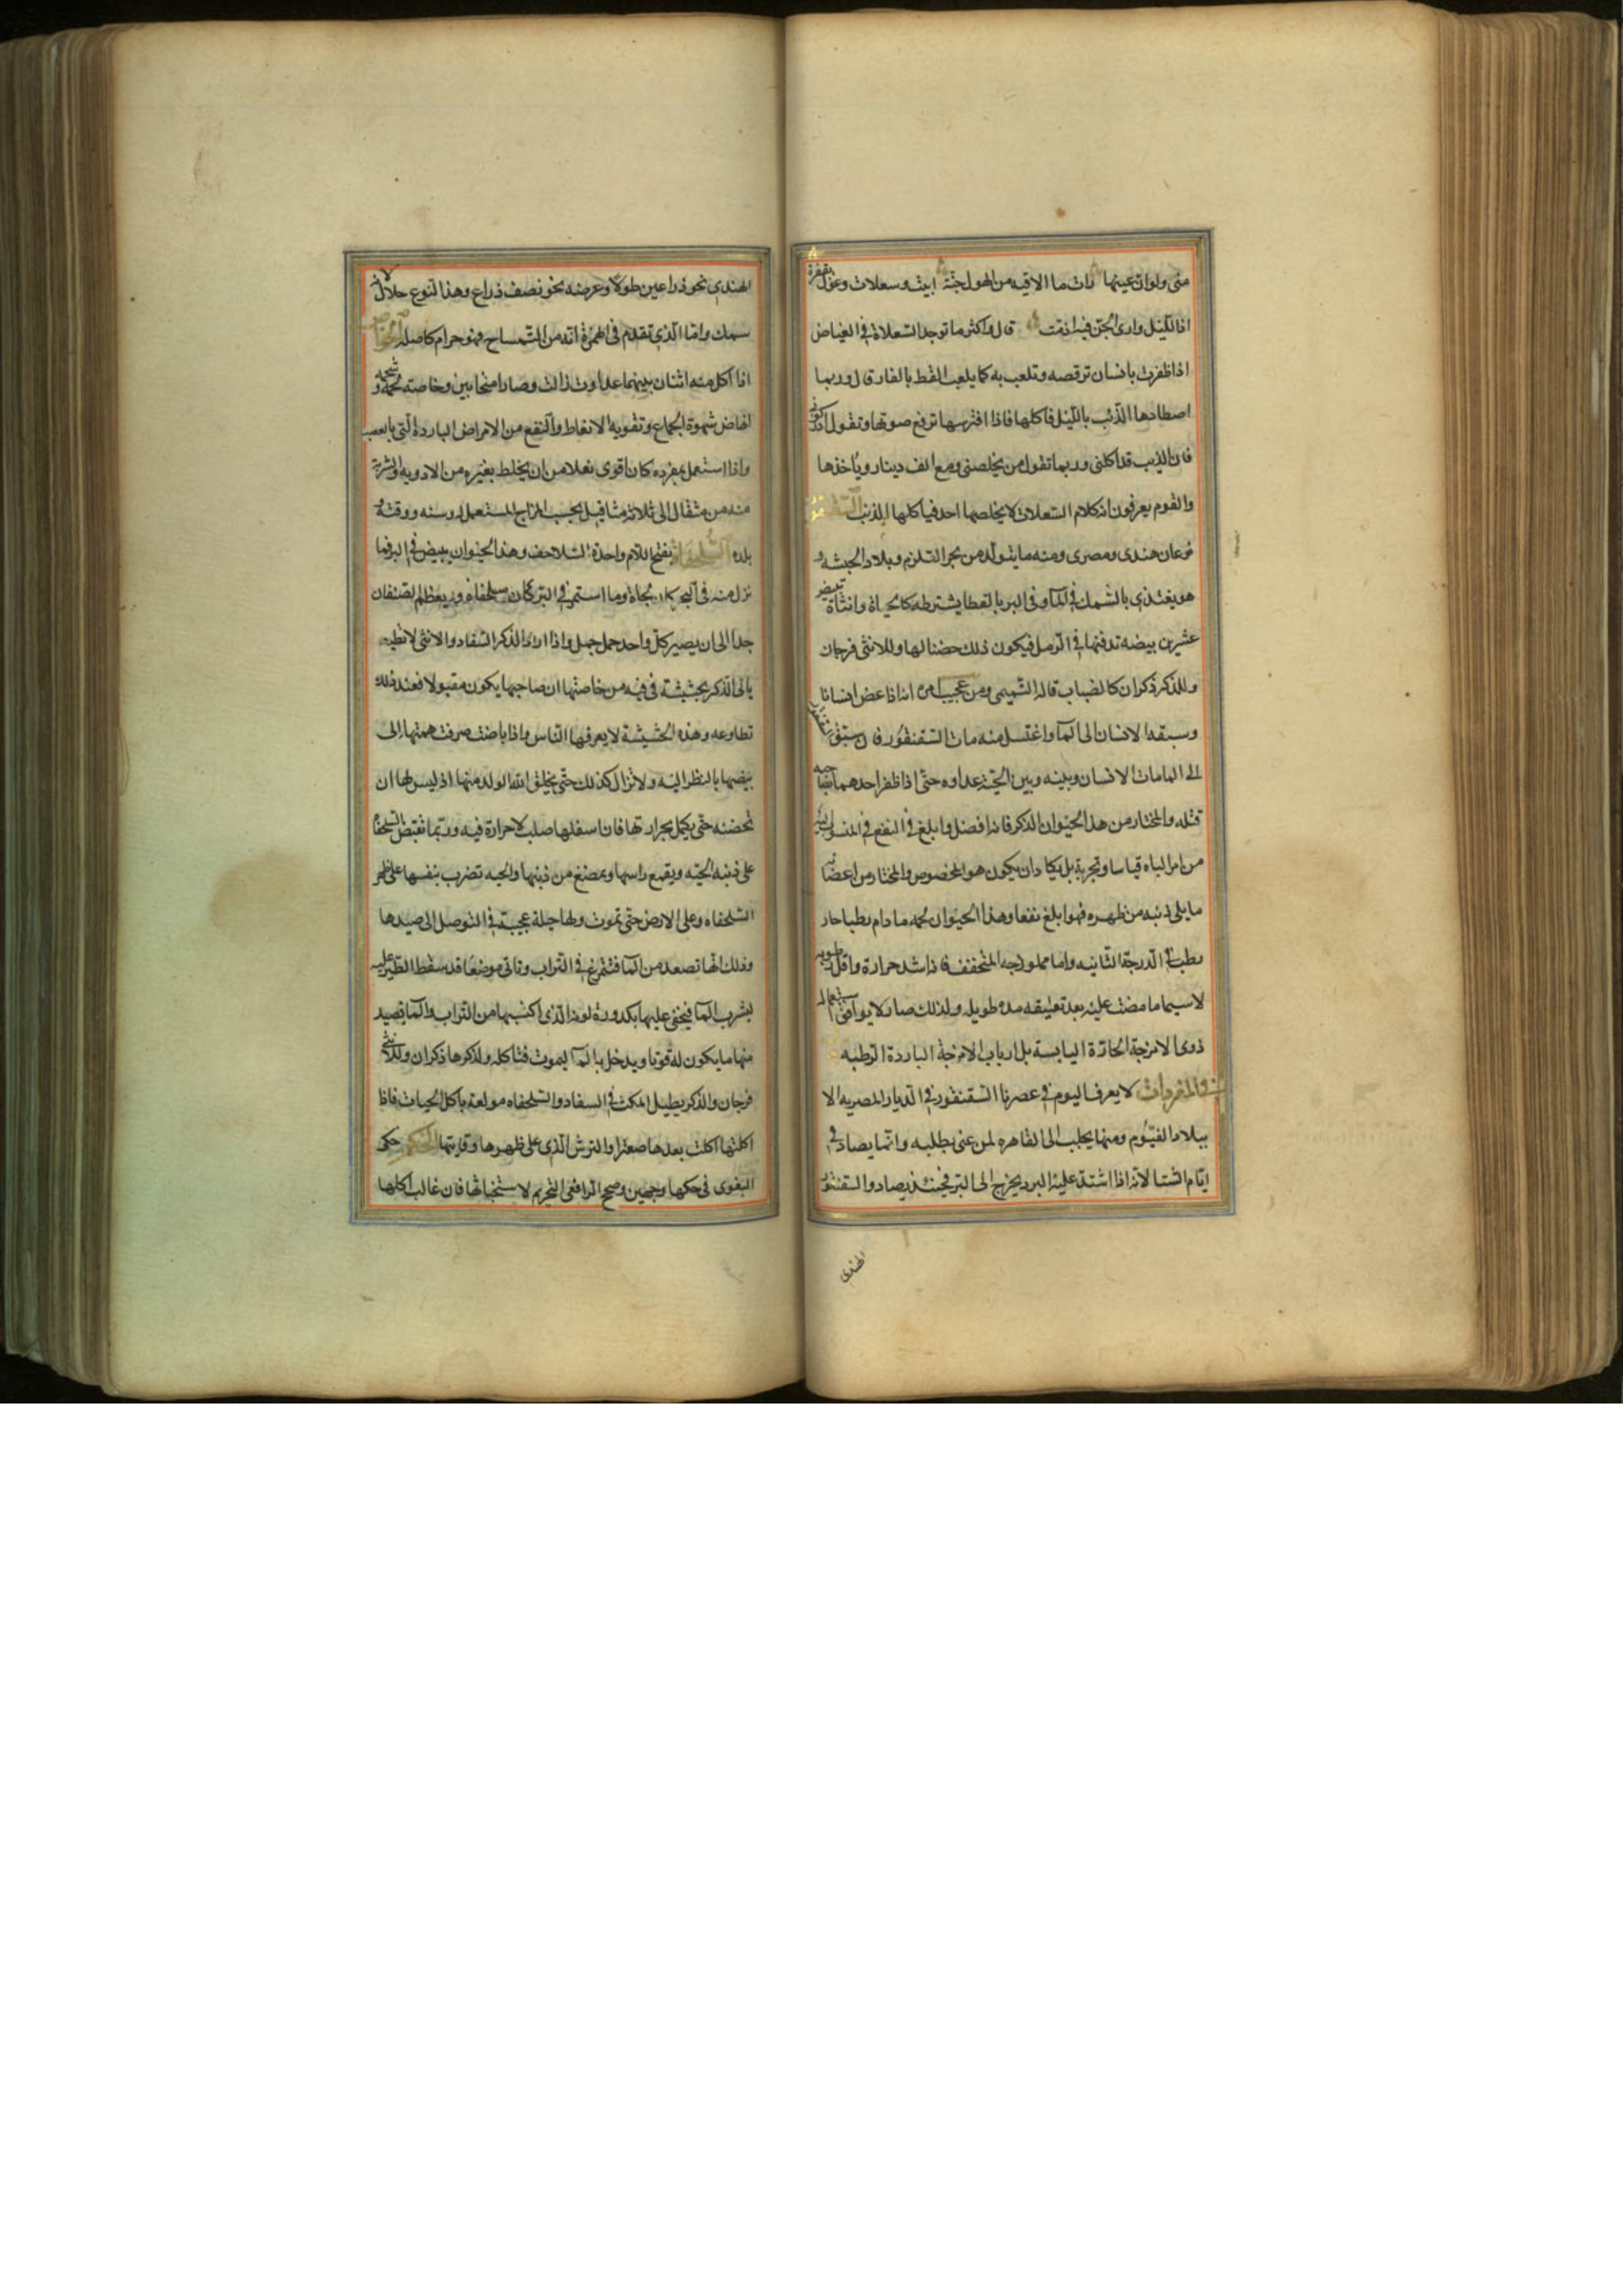 منى ولو ان عينها رات ما الاقيه من الهول جنت ابيت وسعلات وغول بقفرة
اذا الليل وارى الجن فيه ارنت قال واكثر ما توجد السعلاة في الغياض
اذا ظفرت بانسان ترقصه وتلعب به كما يلعب القط بالفار قال وربما
اصطادها الذئب بالليل فاكلها فاذا افترسها ترفع صوتها وتقول ادركوني
فان الذيب قد اكلني وربما تقول من يخلصني ومع الف دينار وياخذها
والقوم يعرفون انه كلام السعلات لا يخلصها احد فياكلها الذئب السقنقور
نوعان هندى ومصرى ومنه ما يتولد من بحر القلزم وبلاد الحبشه و
هو يغتذي بالسمك في الماء وفي البر بالقطا يشترطه كالحياة وانثاه تبيض
عشرين بيضه تدفنها في الرمل فيكون ذلك حضنا لها وللانثى فرجان
وللذكر ذكران كالضباب قاله التميمي ومن عجيب امره انه اذا عض انسانا
وسبقه الانسان الى الماء واغتسل منه مات السقنقور وان سبق السقنقور
الى الما مات الانسان وبينه وبين الحية عداوه حتى اذا ظفر احدهما بصاحبه
قتله والمختار من هذا الحيوان الذكر فانه افضل وابلغ في النفع في المنسوب اليه
من امر الباه قياسا وتجربة بل يكاد ان يكون هو المخصوص والمختار من اعضائه
ما يلي ذنبه من ظهره فهو ابلغ نفعا وهذا الحيوان لحمه ما دام رطبا حار
رطب في الدرجة الثانيه واما مملوحه المتجفف فانه اشد حرارة واقل رطوبه
لا سيما ما مضت عليه بعد تعليقه مده طويله ولذلك صار لا يوافق استعماله
ذوى الامزجة الحارة اليابسة بل ارباب الامزجة الباردة الرطبه
في المفردات لا يعرف اليوم في عصرنا السقنقور في الديار المصريه الا
ببلاد الفيوم ومنها يجلب الى القاهره لمن عنى بطلبه وانما يصاد في
ايام الشتا لانه اذا اشتد عليه البرد يخرج الى البر فحينئذ يصاد والسقنقور
الهندى
الهندي نحو ذراعين طولا وعرضه نحو نصف ذراع وهذا النوع حلال لانه
سمك واما الذي تقدم في الهمزة انه من التمساح فهو حرام كاصله الخواص
اذا اكل منه اثنان بينهما عداوت زالت وصارا متحابين وخاصته لحمه وشحمه
انهاض شهوة الجماع وتقويه الانعاظ والنفع من الامراض الباردة التي بالعصب
واذا استعمل بمفرده كان اقوى فعلا من ان يخلط بغيره من الادويه والشربة
منه من مثقال الى ثلاثة مثاقيل بحسب المزاج المستعمل له وسنه ووقته
بلده السلحفاة بفتح اللام واحدة السلاحف وهذا الحيوان يبيض في البر فما
نزل منه في البحر كان لجاة وما استمر في البر كان سلحفاة ويعظم الصنفان
جدا الى ان يصير كل واحد حمل جمل واذا اراد الذكر السفاد والانثى لا تطيعه
ياتى الذكر بحشيشة في فيه من خاصتها ان صاحبها يكون مقبولا فعند ذلك
تطاوعه وهذه الحشيشة لا يعرفها الناس واذا باضت صرفت همتها الى
بيضها بالنظر اليه ولا تزال كذلك حتى يخلق الله الولد منها اذ ليس لها ان
تحضنه حتى يكمل بحرارتها فان اسفلها صلب لا حرارة فيه وربما تقبض السلحفاة
على ذنب الحيه ويقطع راسها ويمضغ من ذنبها والحيه تضرب بنفسها على ظهر
السلحفاه وعلى الارض حتى تموت ولها حيلة عجيبة في التوصل الى صيدها
وذلك انها تصعد من الما فتتمرغ في التراب وتاتي موضعا قد سقط الطير عليه
لشرب الما فيخفى عليها بكدورة لونه الذي اكتسبها من التراب والما تصيد
منها ما يكون له قوتا ويدخل به الما ليموت فتاكله ولذكرها ذكران وللانثى
فرجان والذكر يطيل المكث في السفاد والسلحفاه مولعة باكل الحيات فاذا
اكلتها اكلت بعدها صعترا والترس الذي على ظهرها وقايتها الحكم حكى
البغوى في حكها وجهين وصحح الرافعى التحريم لاستخباثها فان غالب اكلها